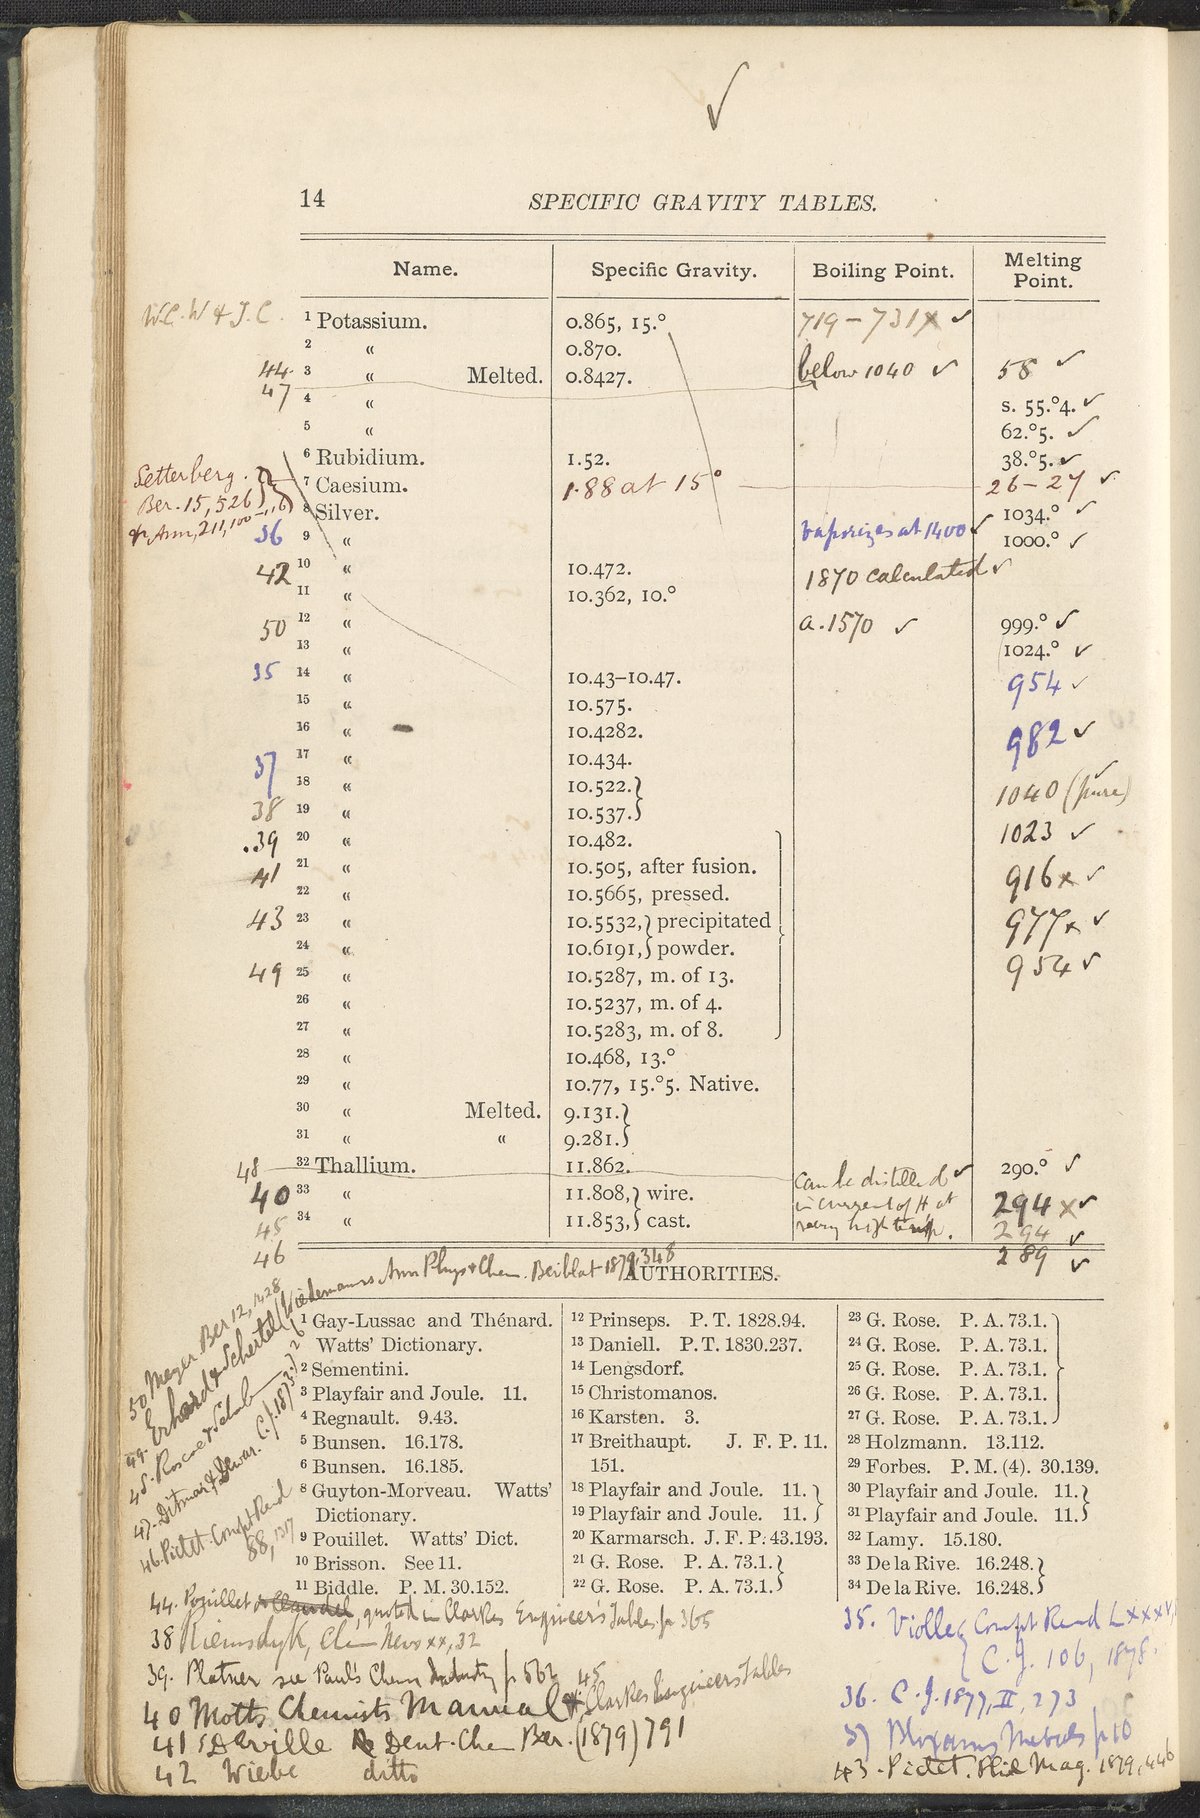 14 SPECIFIC GRAVITY TABLES.
Name. Specific Gravity. Boiling Point. Melting Point.
W.C. W & J. C. 1 Potassium. 0.865, 15.° 719 – 731 x ✓
2 “ 0.870.
44. 3 “ Melted. 0.8427. below 1040 ✓ 58 ✓
47 4 “ s. 55.°4. ✓
5 “ 62.°5. ✓
6 Rubidium. 1.52. 38.°5. ✓
Setterberg. 7 Caesium. 1.88 at 15° 26 – 27 ✓
Ber. 15, 526
& Ann, 211, 100
8 Silver. 1034.° ✓
36 9 “ vaporizes at 1400 ✓ 1000.° ✓
42 10 “ 10.472. 1870 calculated ✓
11 “ 10.362, 10.°
50 12 “ a. 1570 ✓ 999.° ✓
13 “ 1024.° ✓
35 14 “ 10.43–10.47. 954 ✓
15 “ 10.575.
16 “ 10.4282. 982 ✓
37 17 “ 10.434.
18 “ 10.522. 1040 (pure) ✓
38 19 “ 10.537.
.39 20 “ 10.482. 1023 ✓
41 21 “ 10.505, after fusion. 916 x ✓
22 “ 10.5665, pressed.
43 23 “ 10.5532, precipitated 977 x ✓
24 “ 10.6191, powder.
49 25 “ 10.5287, m. of 13. 954 ✓
26 “ 10.5237, m. of 4.
27 “ 10.5283, m. of 8.
28 “ 10.468, 13.°
29 “ 10.77, 15.°5. Native.
30 “ Melted. 9.131.
31 “ “ 9.281.
48 32 Thallium. 11.862. can be distilled ✓ 290.° ✓
40 33 “ 11.808, wire. in current of H at 294 x ✓
45 34 “ 11.853, cast. very high temp. 294 ✓
46 289 ✓
Wiedemanns Ann Phys & Chem. Beiblat 1879, 348
AUTHORITIES.
1 Gay-Lussac and Thénard.
Watts’ Dictionary.
2 Sementini.
3 Playfair and Joule. 11.
4 Regnault. 9.43.
5 Bunsen. 16.178.
6 Bunsen. 16.185.
8 Guyton-Morveau. Watts’
Dictionary.
9 Pouillet. Watts’ Dict.
10 Brisson. See 11.
11 Biddle. P. M. 30.152.
12 Prinseps. P. T. 1828.94.
13 Daniell. P. T. 1830.237.
14 Lengsdorf.
15 Christomanos.
16 Karsten. 3.
17 Breithaupt. J. F. P. 11.
151.
18 Playfair and Joule. 11.
19 Playfair and Joule. 11.
20 Karmarsch. J. F. P. 43.193.
21 G. Rose. P. A. 73.1.
22 G. Rose. P. A. 73.1.
23 G. Rose. P. A. 73.1.
24 G. Rose. P. A. 73.1.
25 G. Rose. P. A. 73.1.
26 G. Rose. P. A. 73.1.
27 G. Rose. P. A. 73.1.
28 Holzmann. 13.112.
29 Forbes. P. M. (4). 30.139.
30 Playfair and Joule. 11.
31 Playfair and Joule. 11.
32 Lamy. 15.180.
33 De la Rive. 16.248.
34 De la Rive. 16.248.
50 Meyer Ber 12, 1428
49. Erhard & Schertel
48. Roscoe &
47. Ditmar & Dewar. C.J. 1873.) 26
46. Pictet. Compt Rend
88, 1317
44. Pouillet quoted in Clarkes Engineer's Tables p 365
38 Riemsdyk, Chem News xx, 32
39. Platner see Paul's Chem p 562
40 Motts Chemists Manual 45 Clarkes Engineers Tables
41 Deville Deut. Chem Ber. (1879) 791
42 Wiebe ditto
35. Violle Compt Rend
C. J. 106, 1878.
36. C. J. 1877, II, 273
37 Bloxams Metals p 10
43. Pictet. Phil Mag. 1879, 446